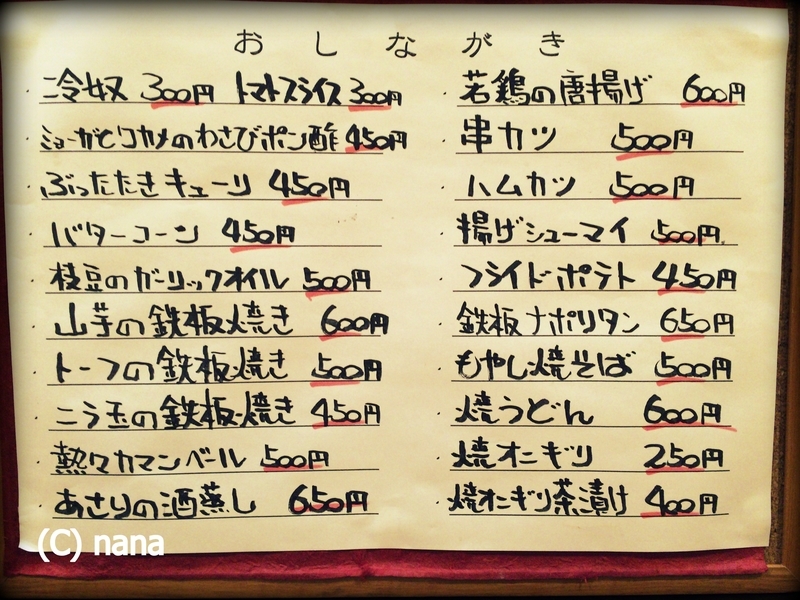 おしながき
冷奴 300円 トマトスライス 300円
ミョーガとワカメのわさびポン酢 450円
ぶったたきキューリ 450円
バターコーン 450円
枝豆のガーリックオイル 500円
山芋の鉄板焼き 600円
トーフの鉄板焼き 500円
ニラ玉の鉄板焼き 450円
熱々カマンベール 500円
あさりの酒蒸し 650円
若鶏の唐揚げ 600円
串カツ 500円
ハムカツ 500円
揚げシューマイ 500円
フライドポテト 450円
鉄板ナポリタン 650円
もやし焼そば 500円
焼うどん 600円
焼オニギリ 250円
焼オニギリ茶漬け 400円
(C) nana